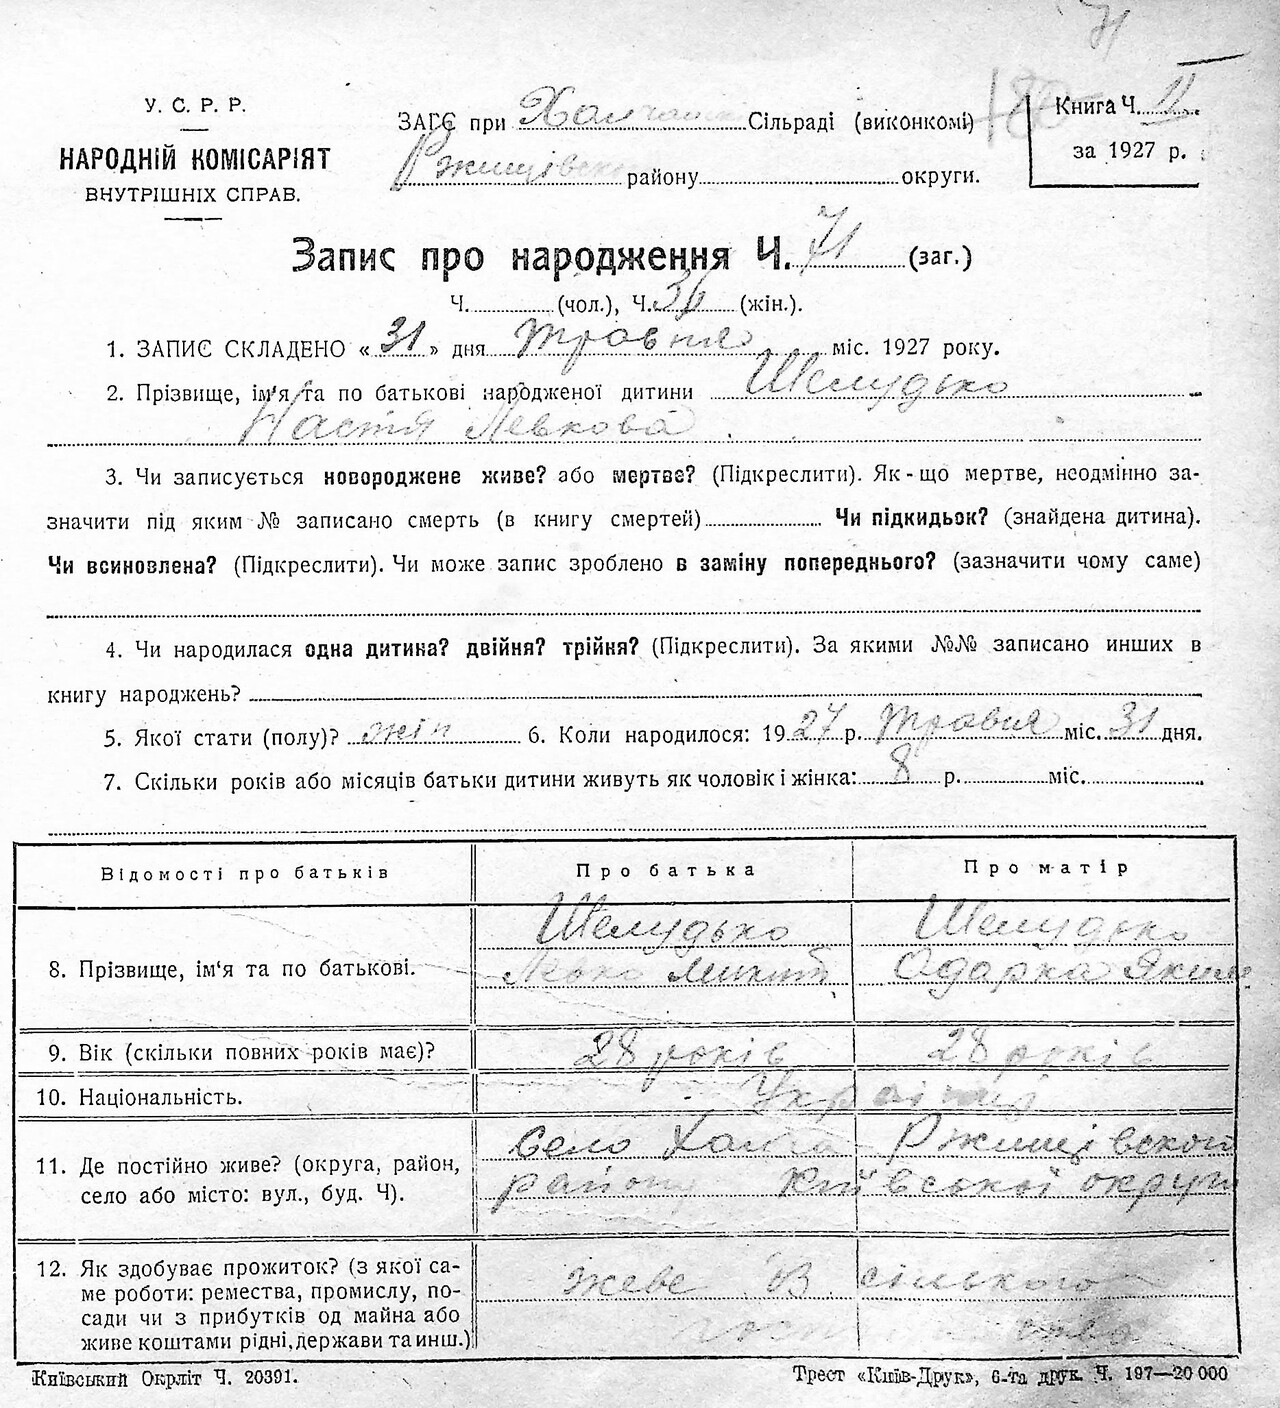 71
У. С. Р. Р.
НАРОДНІЙ КОМІСАРІЯТ
ВНУТРІШНІХ СПРАВ.
ЗАГС при Халчанські Сільраді (виконкомі)
Ржищівського району округи.
180
Книга Ч. II
за 1927 р.
Запис про народження Ч. 71 (заг.)
Ч. (чол.), Ч. 36 (жін.).
1. ЗАПИС СКЛАДЕНО « 31 » дня травня міс. 1927 року.
2. Прізвище, ім'я та по батькові народженої дитини Шелудько
Настя Левкова
3. Чи записується новороджене живе? або мертве? (Підкреслити). Як-що мертве, неодмінно за-
значити під яким № записано смерть (в книгу смертей) Чи підкидьок? (знайдена дитина).
Чи всиновлена? (Підкреслити). Чи може запис зроблено в заміну попереднього? (зазначити чому саме)
4. Чи народилася одна дитина? двійня? трійня? (Підкреслити). За якими №№ записано инших в
книгу народжень?
5. Якої стати (полу)? жін 6. Коли народилося: 1927 р. травня міс. 31 дня.
7. Скільки років або місяців батьки дитини живуть як чоловік і жінка: 8 р. міс.
Відомості про батьків Про батька Про матір
8. Прізвище, ім'я та по батькові. Шелудько Шелудько
Левко Микит Одарка Яким
9. Вік (скільки повних років має)? 28 років 28 років
10. Національність. Україн
11. Де постійно живе? (округа, район, село або місто: вул., буд. Ч). Село Халча Ржищівского
району Київської округи
12. Як здобуває прожиток? (з якої са-
ме роботи: ремества, промислу, по-
сади чи з прибутків од майна або
живе коштами рідні, держави та инш.)
жеве В сільского
господарства
Київський Окрліт Ч. 20391.
Трест «Київ-Друк», 6-та друк. Ч. 197—20 000